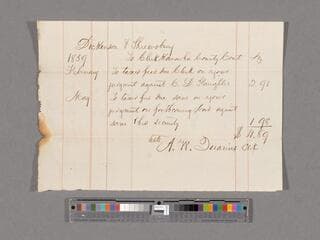 Dickenson & Shrewsbury
1859 To Clerk Kanawha County Court Dr
February To taxes fees due Clerk on your
judgment against C. D. Slaughter 2.91
May To taxes fees due same on your
judgment on forthcoming bond against
same & his security 1.98
$ 4.89
A. W. Clk